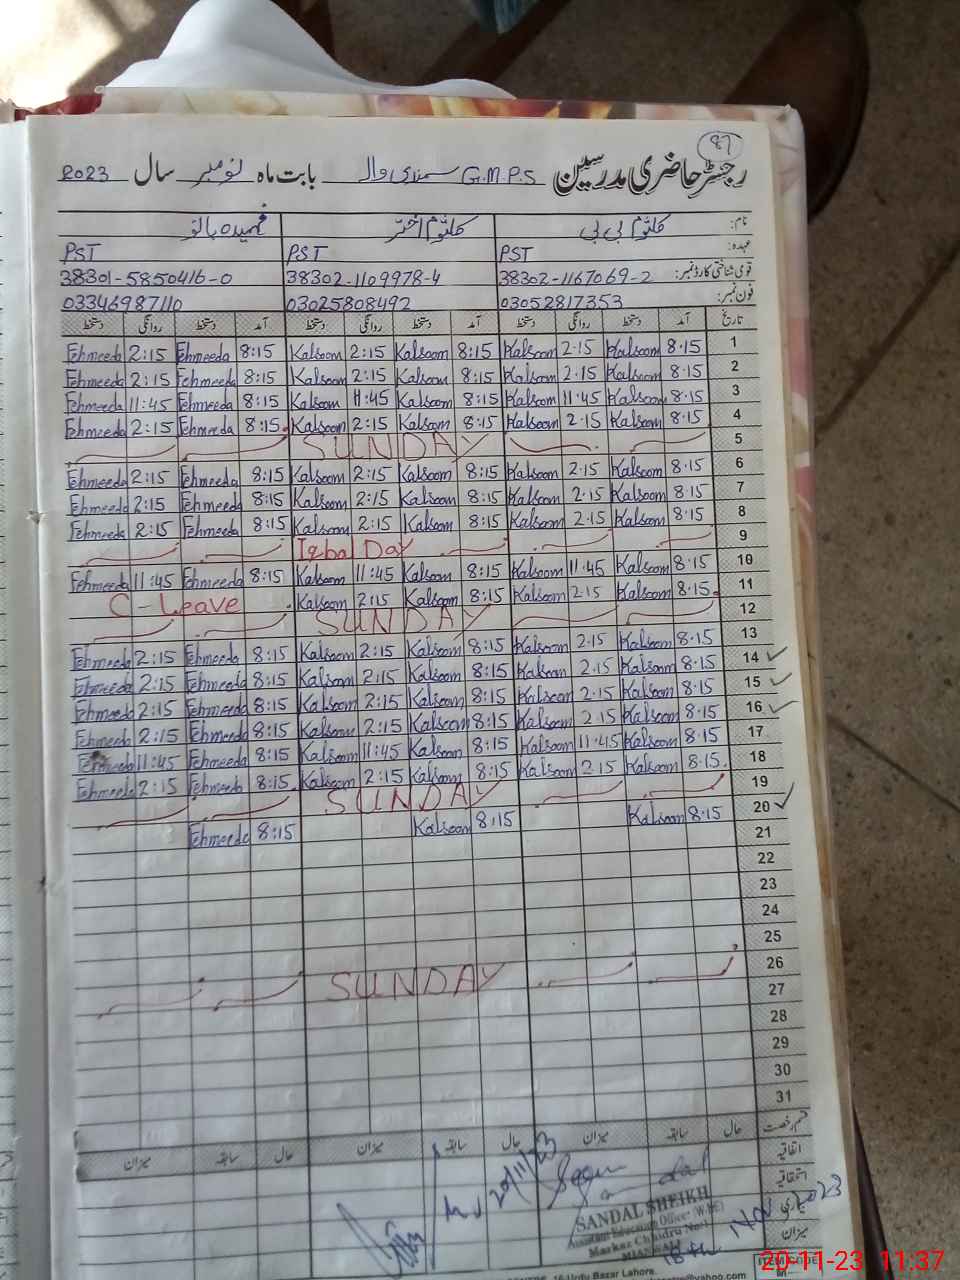 87
رجسٹر حاضری مدرسین G.M.P.S سمندی وال بابت ماہ نومبر سال 2023
نام: کلثوم بی بی کلثوم اختر فہمیدہ بانو
عہدہ: PST PST PST
قومی شناختی کارڈ نمبر: 38302-1167069-2 38302-1109978-4 38301-5850416-0
فون نمبر: 03052817353 03025808492 03346987110
تاریخ آمد دستخط روانگی دستخط آمد دستخط روانگی دستخط آمد دستخط روانگی دستخط
Fehmeeda 2:15 Fehmeeda 8:15 Kalsoom 2:15 Kalsoom 8:15 Kalsoom 2.15 Kalsoom 8.15 1
Fehmeeda 2:15 Fehmeeda 8:15 Kalsoom 2:15 Kalsoom 8:15 Kalsoom 2.15 Kalsoom 8.15 2
Fehmeeda 11:45 Fehmeeda 8:15 Kalsoom 11:45 Kalsoom 8:15 Kalsoom 11.45 Kalsoom 8.15 3
Fehmeeda 2:15 Fehmeeda 8:15 Kalsoom 2:15 Kalsoom 8:15 Kalsoom 2.15 Kalsoom 8.15 4
SUNDAY 5
Fehmeeda 2:15 Fehmeeda 8:15 Kalsoom 2:15 Kalsoom 8:15 Kalsoom 2.15 Kalsoom 8.15 6
Fehmeeda 2:15 Fehmeeda 8:15 Kalsoom 2:15 Kalsoom 8:15 Kalsoom 2.15 Kalsoom 8.15 7
Fehmeeda 2:15 Fehmeeda 8:15 Kalsoom 2:15 Kalsoom 8:15 Kalsoom 2.15 Kalsoom 8.15 8
Iqbal Day 9
Fehmeeda 11:45 Fehmeeda 8:15 Kalsoom 11:45 Kalsoom 8:15 Kalsoom 11.45 Kalsoom 8.15 10
C-Leave Kalsoom 2:15 Kalsoom 8:15 Kalsoom 2.15 Kalsoom 8.15 11
SUNDAY 12
Fehmeeda 2:15 Fehmeeda 8:15 Kalsoom 2:15 Kalsoom 8:15 Kalsoom 2.15 Kalsoom 8.15 13
Fehmeeda 2:15 Fehmeeda 8:15 Kalsoom 2:15 Kalsoom 8:15 Kalsoom 2.15 Kalsoom 8.15 14
Fehmeeda 2:15 Fehmeeda 8:15 Kalsoom 2:15 Kalsoom 8:15 Kalsoom 2.15 Kalsoom 8.15 15
Fehmeeda 2:15 Fehmeeda 8:15 Kalsoom 2:15 Kalsoom 8:15 Kalsoom 2.15 Kalsoom 8.15 16
Fehmeeda 11:45 Fehmeeda 8:15 Kalsoom 11:45 Kalsoom 8:15 Kalsoom 11.45 Kalsoom 8.15 17
Fehmeeda 2:15 Fehmeeda 8:15 Kalsoom 2:15 Kalsoom 8:15 Kalsoom 2.15 Kalsoom 8.15 18
SUNDAY 19
Fehmeeda 8:15 Kalsoom 8:15 Kalsoom 8.15 20
21
22
23
24
25
SUNDAY 26
27
28
29
30
31
قسم رخصت حال سابقہ میزان حال سابقہ میزان حال سابقہ میزان
اتفاقیہ
استحقاقیہ
بیماری
میزان
20/11/23
SANDAL SHEIKH
Assistant Education Officer (W-EE)
Markaz Chhidru No:1
MIANWALI
18th Nov, 2023
ITEM CODE
16-Urdu Bazar Lahore.
@yahoo.com
20-11-23 11:37